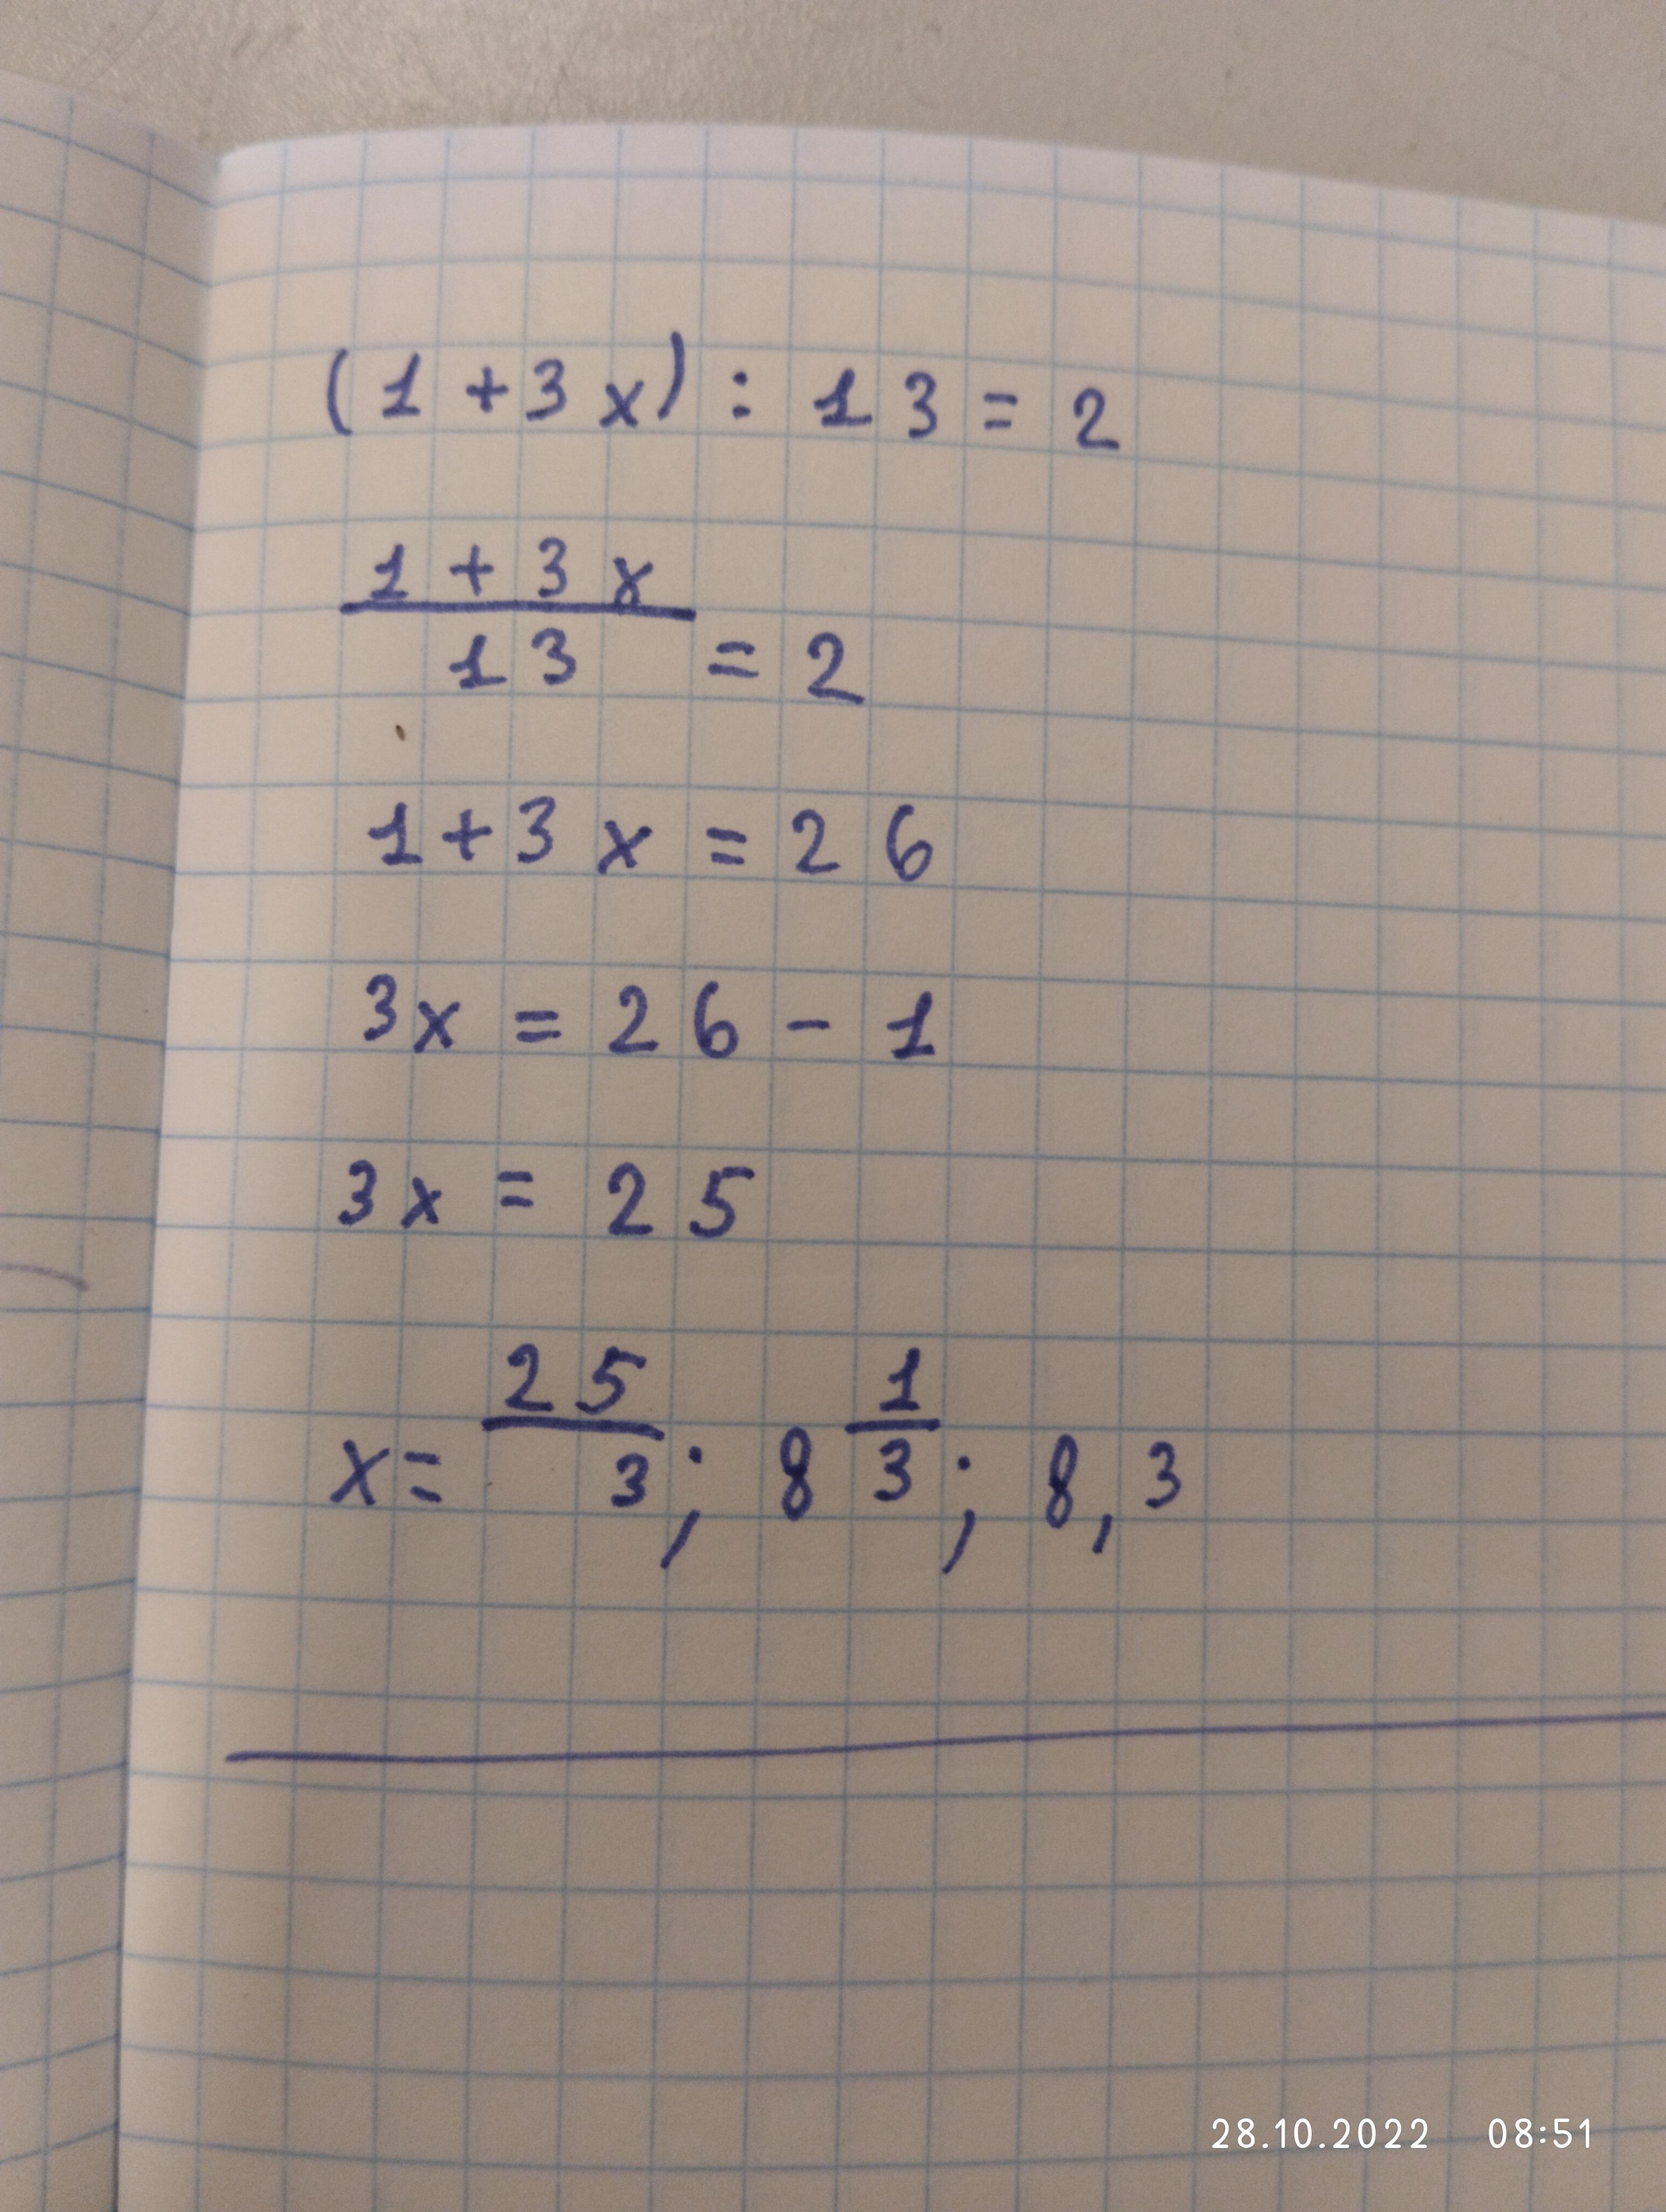 (1 + 3x) : 13 = 2
1 + 3x
13 = 2
1 + 3x = 26
3x = 26 - 1
3x = 25
x = 25/3; 8 1/3; 8,3
28.10.2022 08:51